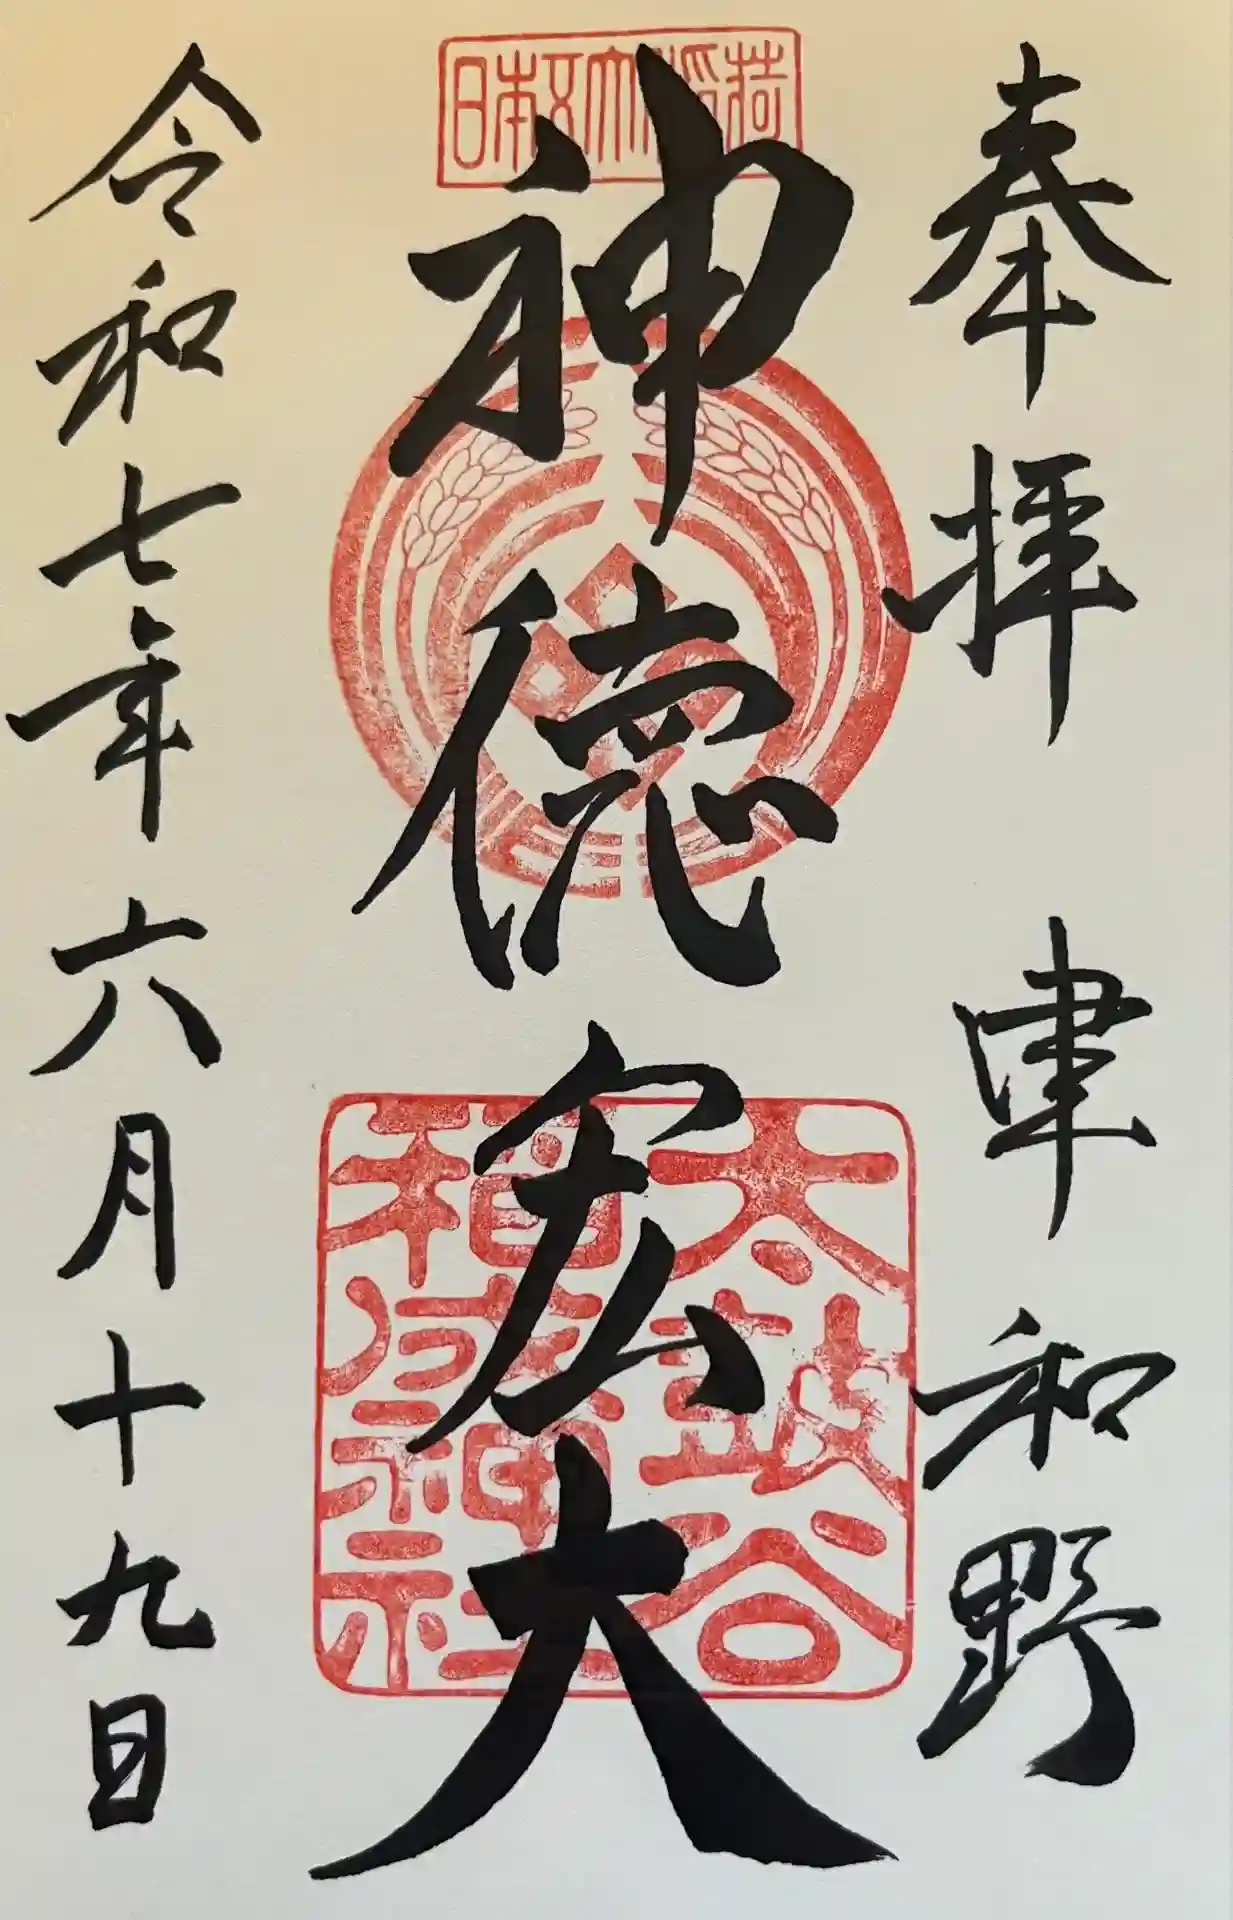 奉拝 津和野
日本五大稲荷
神徳宏大
太皷谷
稲成神社
令和七年六月十九日